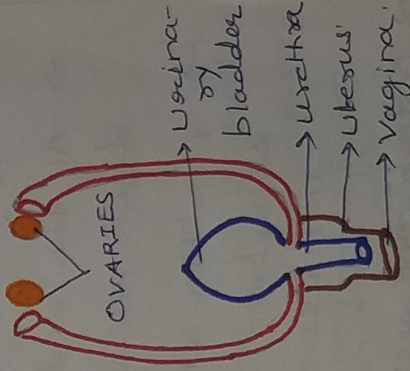 OVARIES
Urina-
ry
bladder
Urethra
Uterus
Vagina.